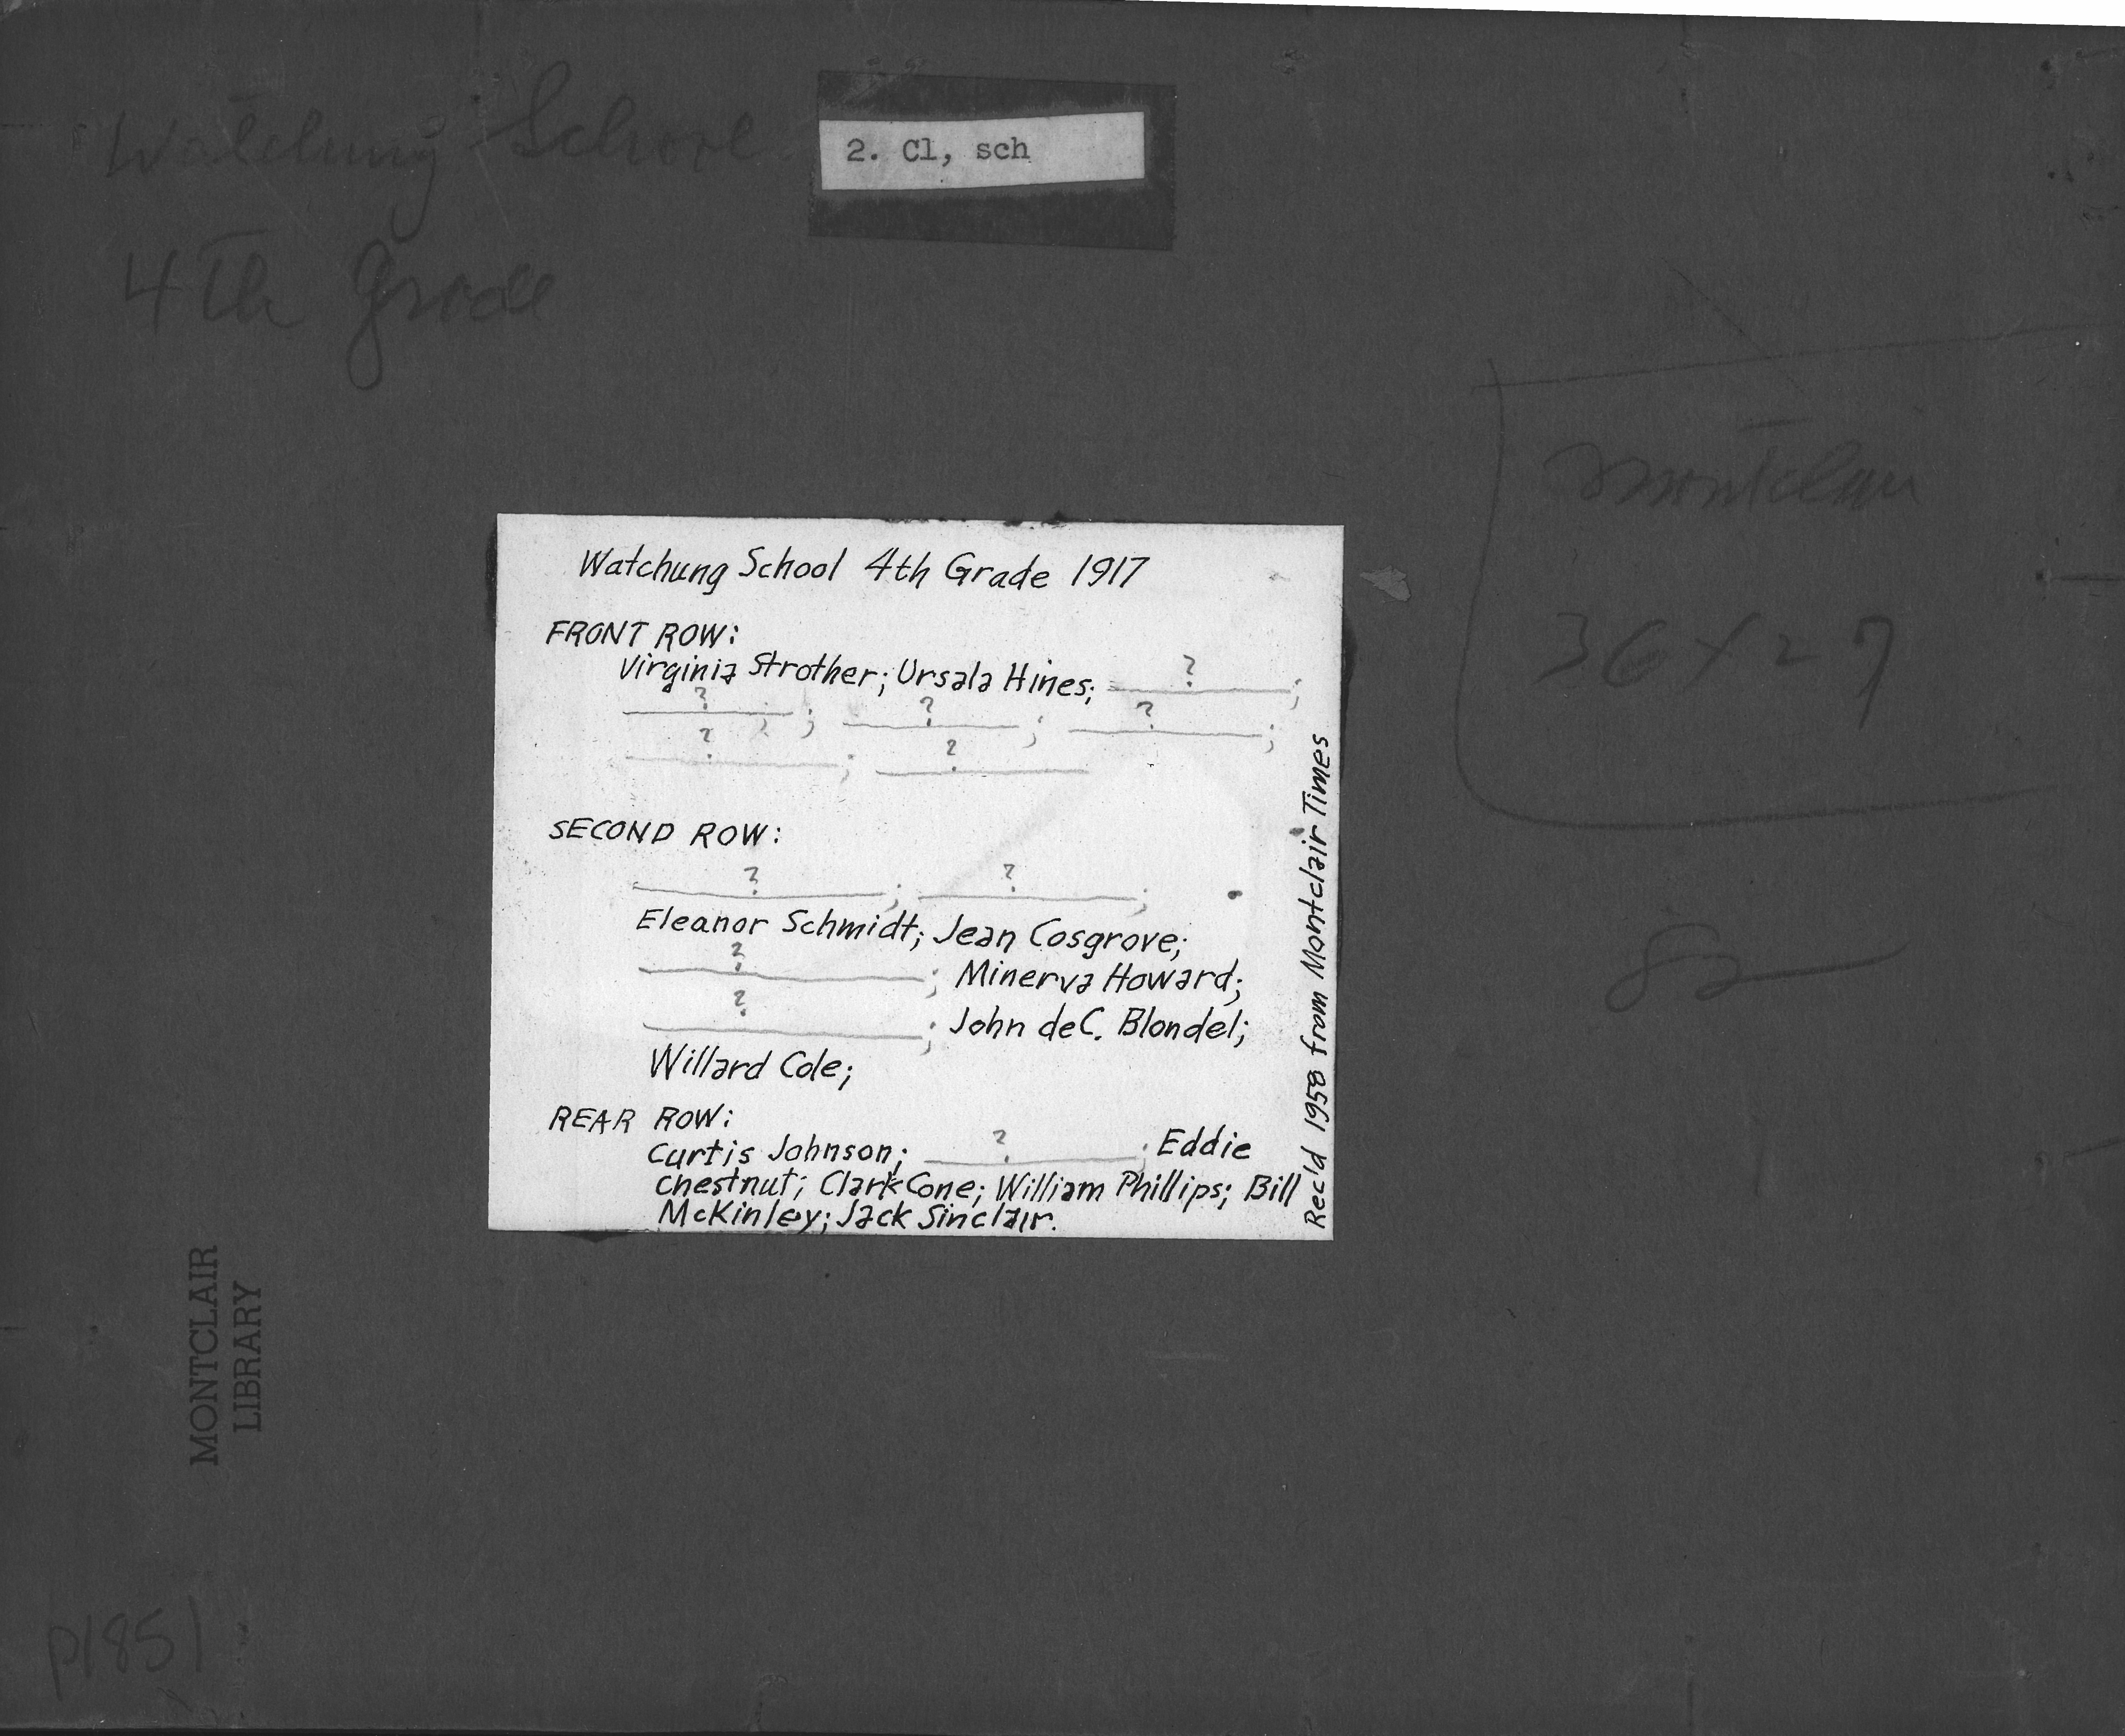 Watchung School
2. Cl, sch
4th grade
Montclair
36 x 27
Watchung School 4th Grade 1917
FRONT ROW:
Virginia Strother; Ursala Hines; ? ;
? ; ? ; ? ;
? ; ?
SECOND ROW:
? ; ? ;
Eleanor Schmidt; Jean Cosgrove;
? ; Minerva Howard;
? ; John deC. Blondel;
Willard Cole;
REAR ROW:
Curtis Johnson; ? ; Eddie
Chestnut; Clark Cone; William Phillips; Bill
McKinley; Jack Sinclair.
Rec'd 1958 from Montclair Times
MONTCLAIR
LIBRARY
p1851